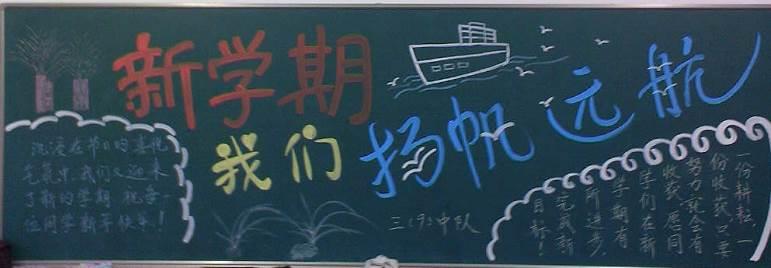 新学期
我们扬帆远航
沉浸在节日的喜悦
气氛中,我们又迎来
了新的学期 祝每一
位同学新年快乐!
三(9)中队
一份耕耘,一
份收获 只要
努力就会有
收获 愿同
学们在新
学期有
所进步,
完成新
目标!